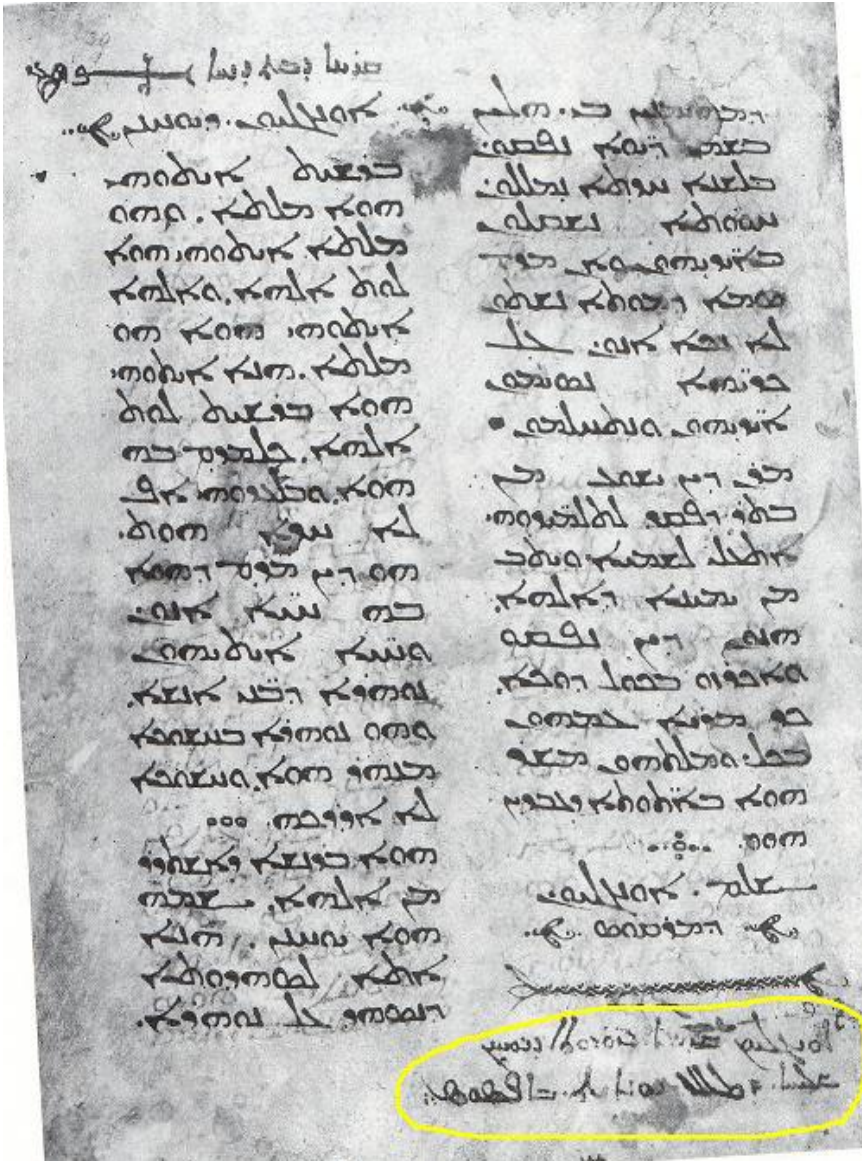 ܕܡܗܝܡܢܝܢ ܒܝ. ܗܠܝܢ
ܒܫܡܝ ܕܝܘܐ ܢܦܩܘܢ.
ܒܠܫܢܐ ܚܕܬܐ ܢܡܠܠܘܢ.
ܚܘܘܬܐ ܢܫܩܠܘܢ
ܒܐܝܕܝܗܘܢ ܘܐܢ ܡܕܡ
ܣܡܐ ܕܡܘܬܐ ܢܫܬܘܢ
ܠܐ ܢܟܐ ܐܢܘܢ. ܥܠ
ܟܪܝܗܐ ܢܣܝܡܘܢ
ܐܝܕܝܗܘܢ ܘܢܬܚܠܡܘܢ.
ܡܪܢ ܕܝܢ ܝܫܘܥ ܡܢ
ܒܬܪ ܕܦܩܕ ܠܬܠܡܝܕܘܗܝ
ܐܬܥܠܝ ܠܫܡܝܐ ܘܝܬܒ
ܡܢ ܝܡܝܢܐ ܕܐܠܗܐ.
ܗܢܘܢ ܕܝܢ ܢܦܩܘ
ܘܐܟܪܙܘ ܒܟܠ ܕܘܟܐ.
ܟܕ ܡܪܝܐ ܥܡܗܘܢ
ܒܟܠ. ܘܡܠܬܗܘܢ ܡܫܪ
ܗܘܐ ܒܐܬܘܬܐ ܕܥܒܕܝܢ
ܗܘܘ.
ܫܠܡ. ܐܘܢܓܠܝܘܢ
ܕܡܪܩܘܣ
ܐܘܢܓܠܝܘܢ. ܕܝܘܚܢܢ
ܒܪܫܝܬ ܐܝܬܘܗܝ
ܗܘܐ ܡܠܬܐ. ܘܗܘ
ܡܠܬܐ ܐܝܬܘܗܝ ܗܘܐ
ܠܘܬ ܐܠܗܐ. ܘܐܠܗܐ
ܐܝܬܘܗܝ ܗܘܐ ܗܘ
ܡܠܬܐ. ܗܢܐ ܐܝܬܘܗܝ
ܗܘܐ ܒܪܫܝܬ ܠܘܬ
ܐܠܗܐ. ܟܠܡܕܡ ܒܗ
ܗܘܐ. ܘܒܠܥܕܘܗܝ ܐܦ
ܠܐ ܚܕܐ ܗܘܬ.
ܗܘ ܕܝܢ ܡܕܡ ܕܗܘܐ
ܒܗ ܚܝܐ ܐܢܘܢ.
ܘܚܝܐ ܐܝܬܝܗܘܢ
ܢܘܗܪܐ ܕܒܢܝ ܐܢܫܐ.
ܘܗܘ ܢܘܗܪܐ ܒܚܫܘܟܐ
ܡܢܗܪ ܗܘܐ. ܘܚܫܘܟܐ
ܠܐ ܐܕܪܟܗ.
ܗܘܐ ܒܪܢܫܐ ܕܐܫܬܕܪ
ܡܢ ܐܠܗܐ. ܫܡܗ
ܗܘܐ ܝܘܚܢܢ. ܗܢܐ
ܐܬܐ ܠܣܗܕܘܬܐ
ܕܢܣܗܕ ܥܠ ܢܘܗܪܐ.